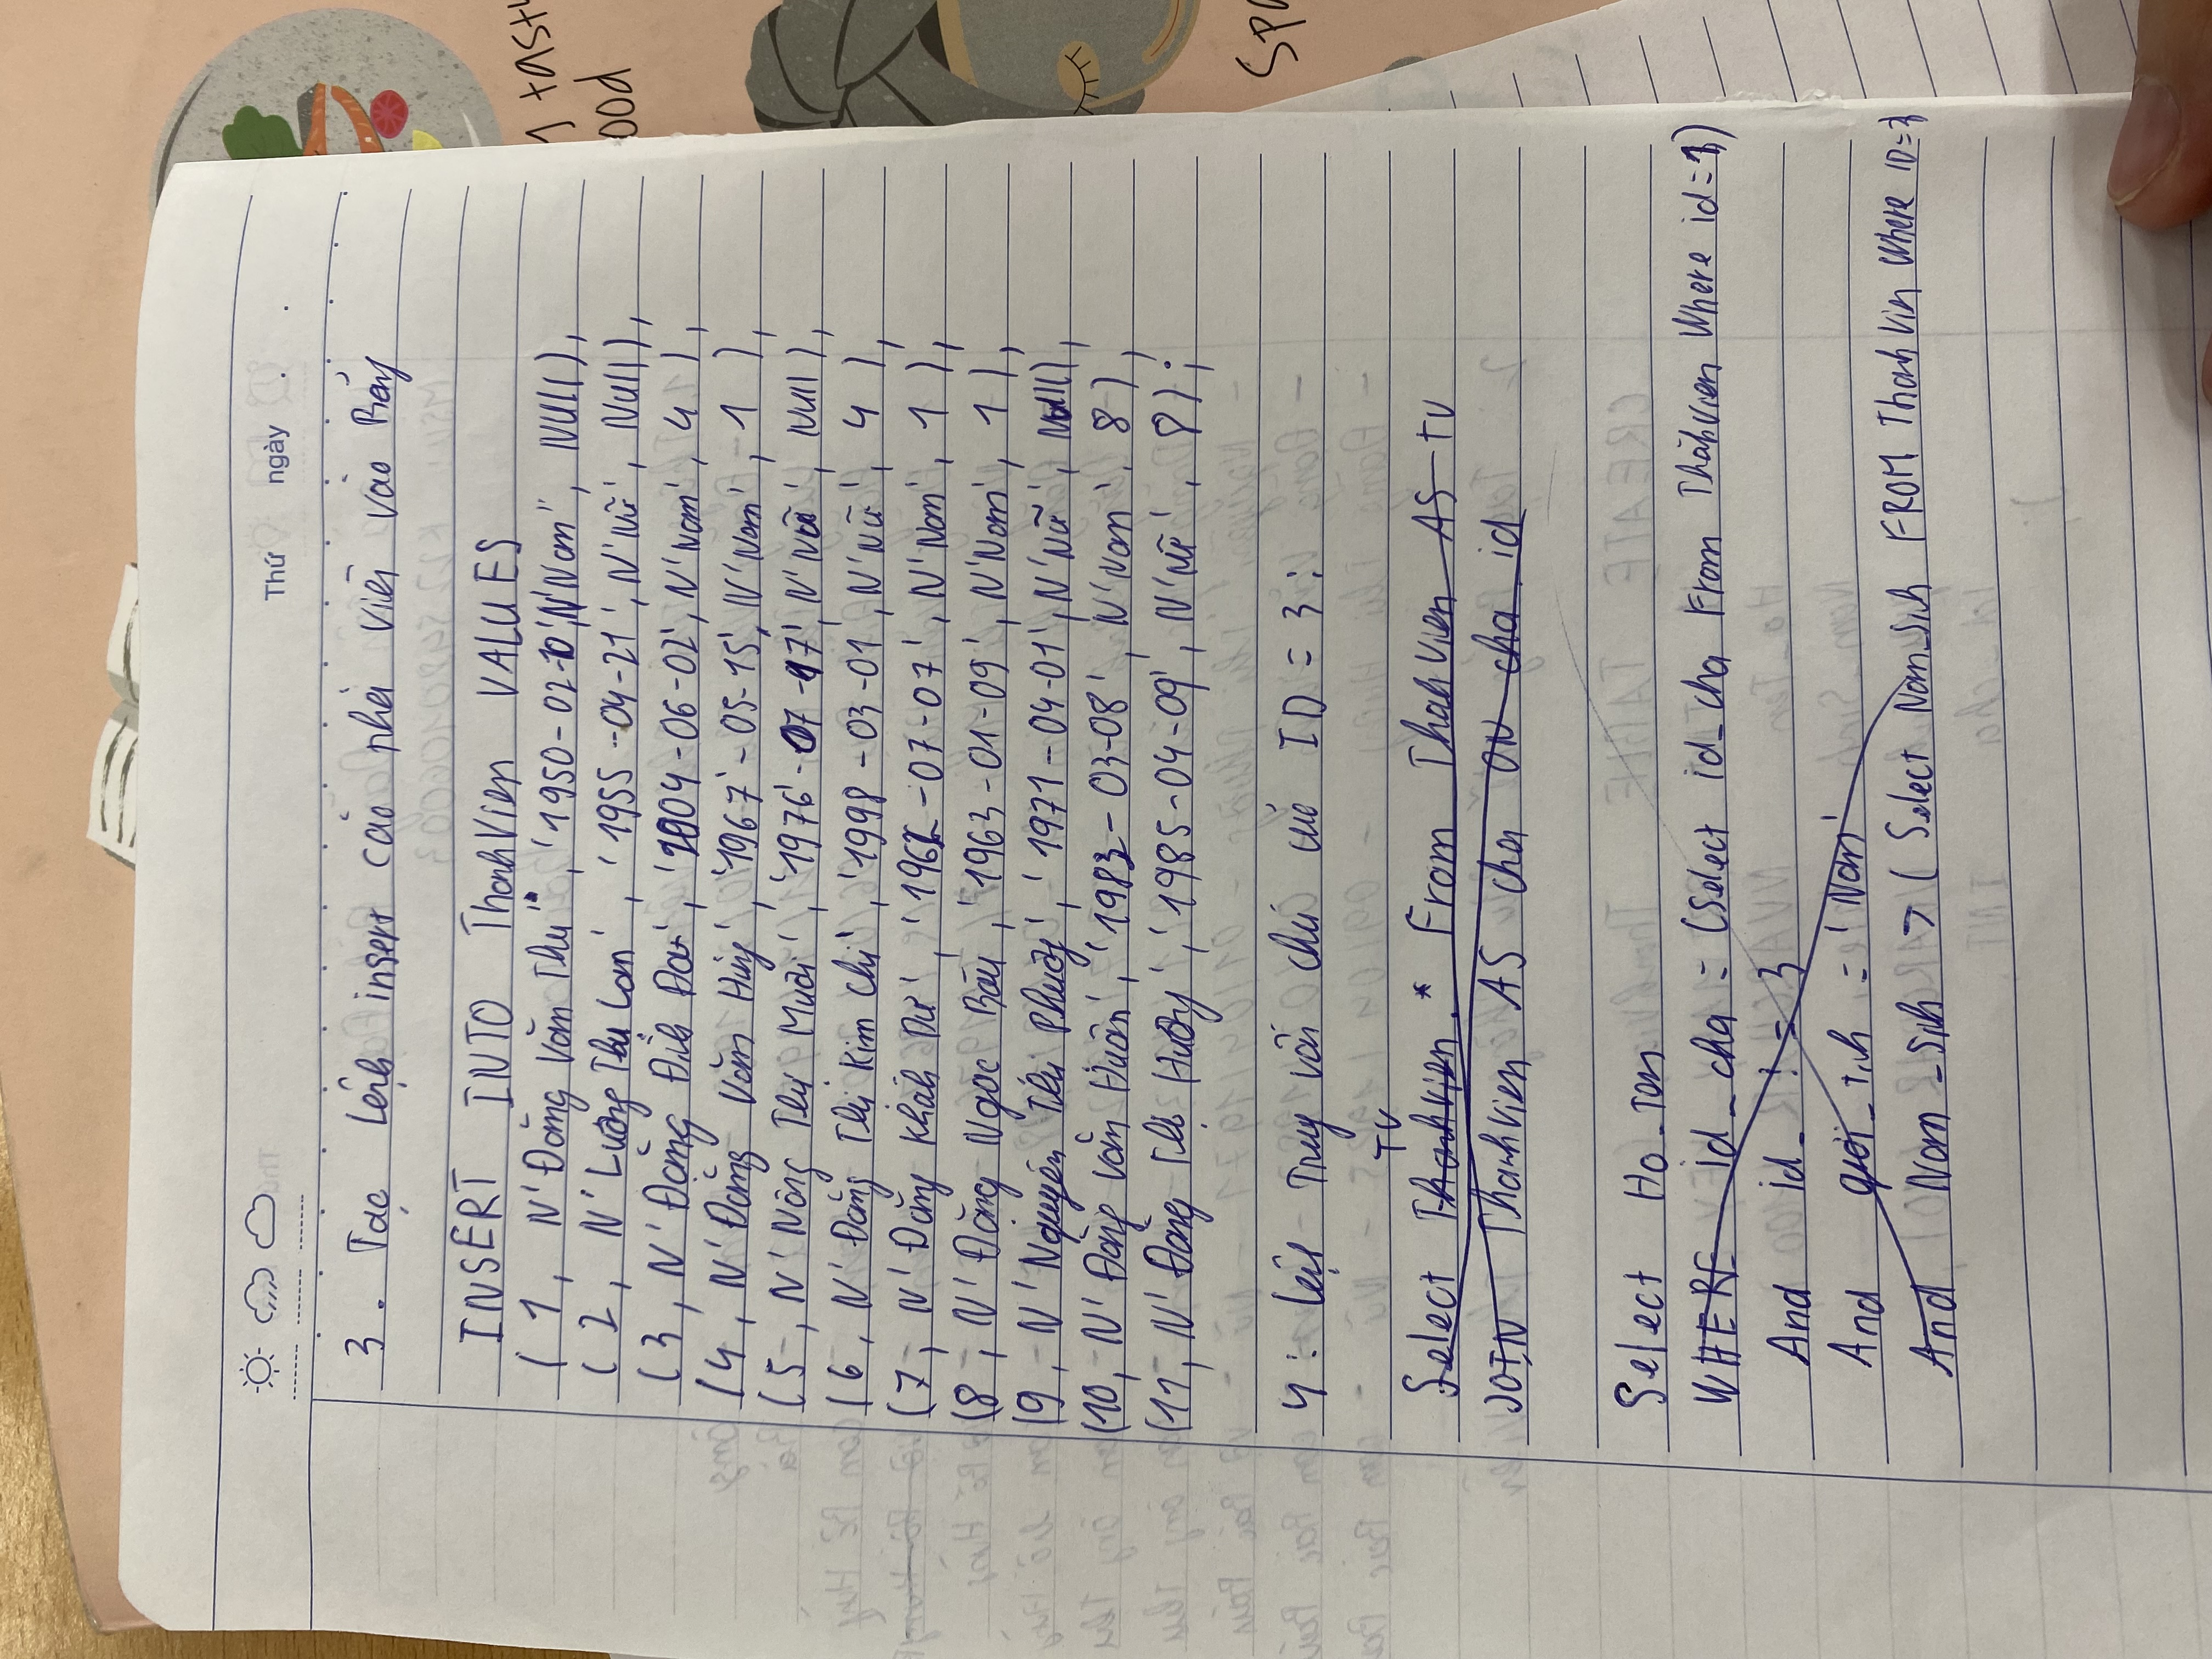 Thứ ngày
3. Tạo lệnh insert các thành viên vào bảng
INSERT INTO ThanhVien VALUES
(1, N'Đặng Văn Thu', '1950-02-10', N'Nam', NULL),
(2, N'Lương Thu Lan', '1955-04-21', N'Nữ', Null),
(3, N'Đặng Đình Đài', '2004-06-02', N'Nam', 4),
(4, N'Đặng Văn Hùng', '1967-05-15', N'Nam', 1),
(5, N'Nông Thị Mười', '1976-07-17', N'Nữ', Null),
(6, N'Đặng Thị Kim Chi', '1998-03-01', N'Nữ', 4),
(7, N'Đặng Khánh Dư', '1962-07-07', N'Nam', 1),
(8, N'Đặng Ngọc Báu', '1963-01-09', N'Nam', 1),
(9, N'Nguyễn Thị Phượng', '1971-04-01', N'Nữ', Null),
(10, N'Đặng Văn Huân', '1983-03-08', N'Nam', 8),
(11, N'Đặng Thị Hường', '1985-04-09', N'Nữ', 8);
4: Lệnh Truy vấn chú của ID = 3:
TV
Select ThanhVien.* From ThanhVien AS TV
JOIN ThanhVien AS cha ON cha.id
Select Ho_Ten
WHERE id_cha = (Select id_cha From ThanhVien Where id=3)
And id != 3
And giới_tính = 'Nam'
And Nam_sinh > (Select Nam_sinh FROM ThanhVien Where ID=3